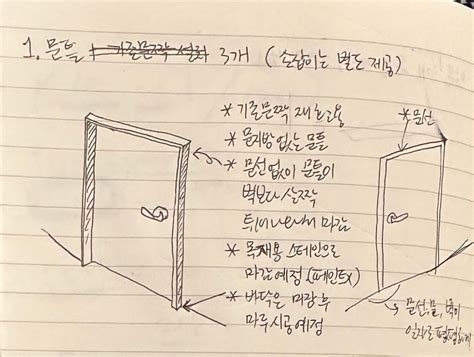 1. 문틀 + 기존문짝 설치 3개 (손잡이는 별도 제공)
* 기존문짝 재활용
* 문지방 없는 문틀
* 문선없이 문틀이
벽보다 살짝
튀어나오게 마감
* 목재용 스테인으로
마감 예정 (페인트X)
* 바닥은 미장 후
마루 시공예정
* 문선
문선, 문, 벽이
일자로 평평하게